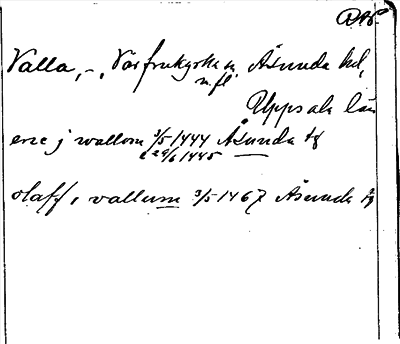 Valla, -, Vårfrukyrka sn,
m. fl. Åsunda hd,
Uppsala län
eric j wallom 3/5 1444 Åsunda tg
29/6 1445
olaff, vallum 3/5 1467 Åsunda tg